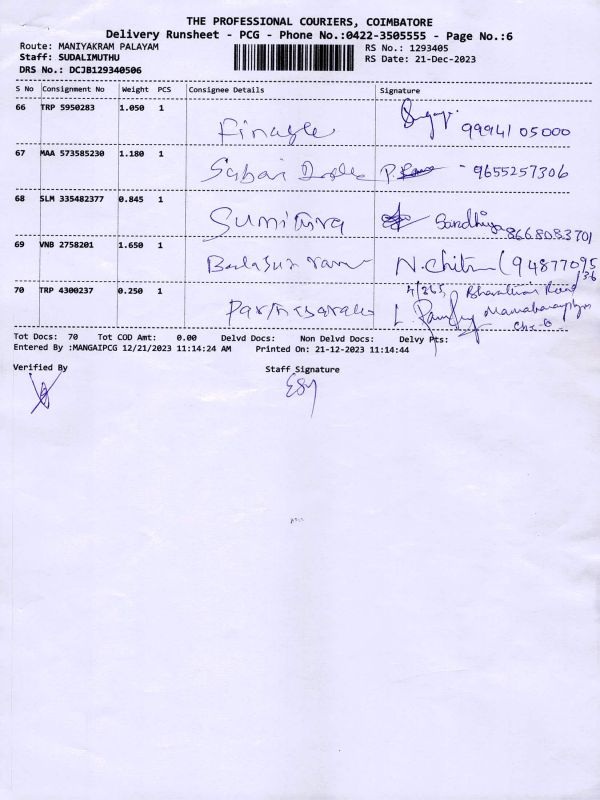 THE PROFESSIONAL COURIERS, COIMBATORE
Delivery Runsheet - PCG - Phone No.:0422-3505555 - Page No.:6
Route: MANIYAKRAM PALAYAM RS No.: 1293405
Staff: SUDALIMUTHU RS Date: 21-Dec-2023
DRS No.: DCJB129340506
S No Consignment No Weight PCS Consignee Details Signature
66 TRP 5950283 1.050 1
Finagle 99941 05000
67 MAA 573585230 1.180 1
Sabari 9655257306
68 SLM 335482377 0.845 1
Sumithra Sandhiya 8668083701
69 VNB 2758201 1.650 1
N. Chitra (9487709536
70 TRP 4300237 0.250 1
4/265, Bharathiar Road
Tot Docs: 70 Tot COD Amt: 0.00 Delvd Docs: Non Delvd Docs: Delvy Pts:
Entered By :MANGAIPCG 12/21/2023 11:14:24 AM Printed On: 21-12-2023 11:14:44
Verified By Staff Signature